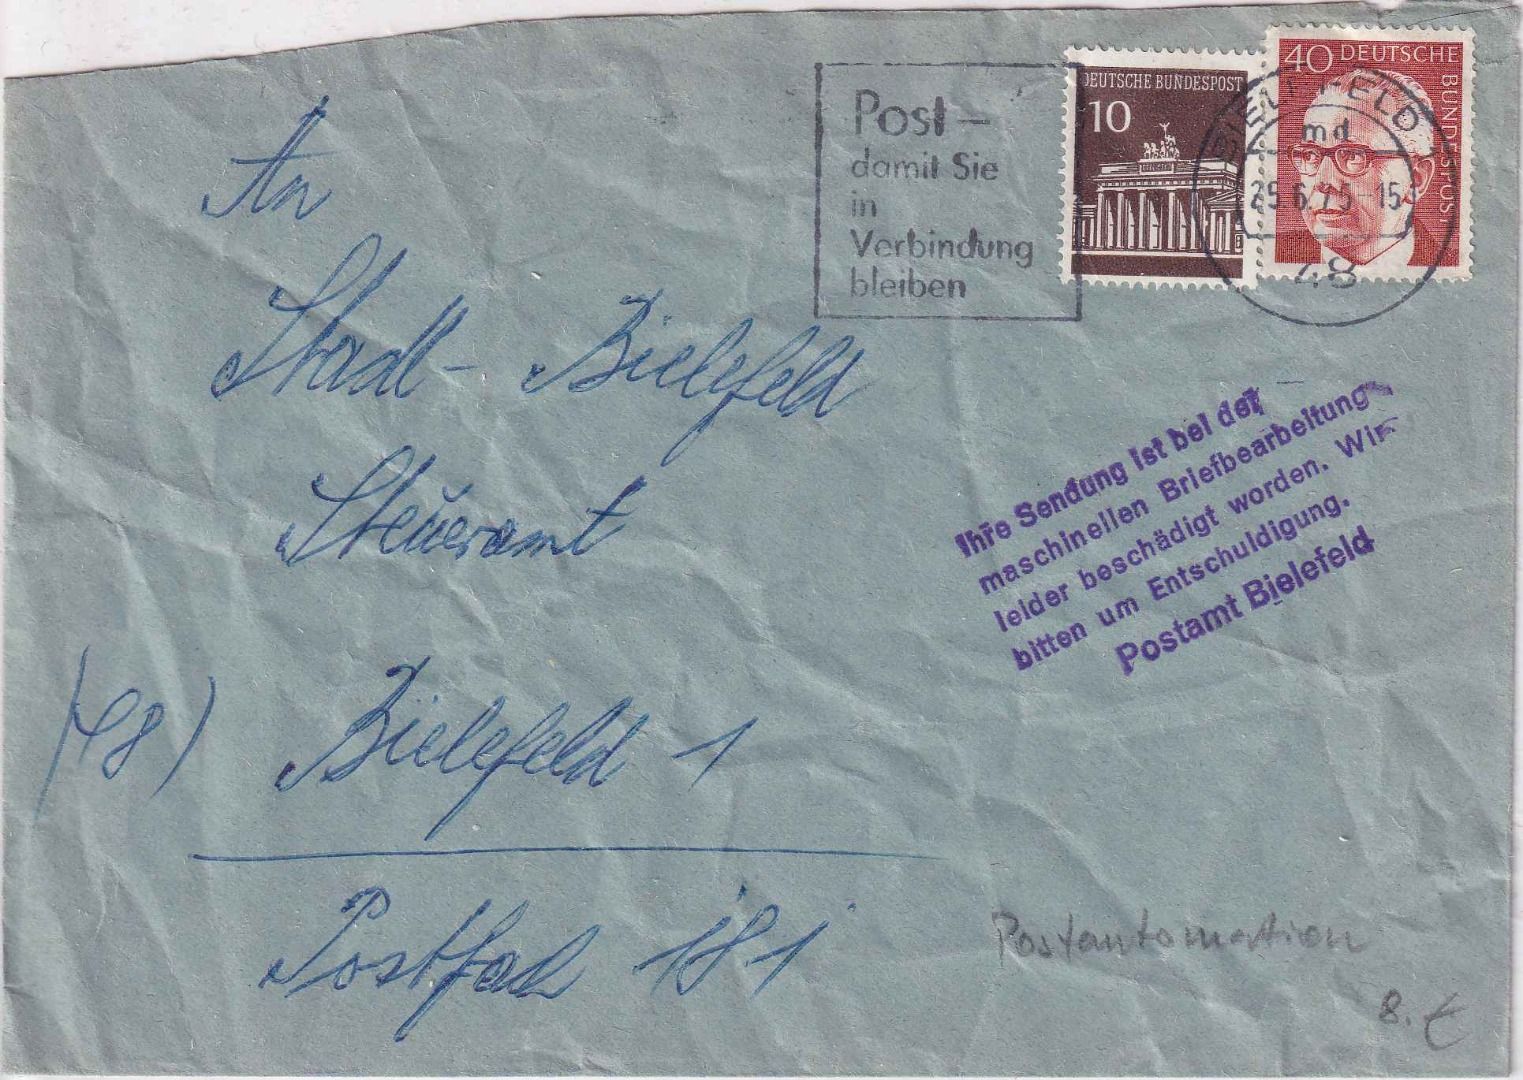 Post –
damit Sie
in
Verbindung
bleiben
DEUTSCHE BUNDESPOST
10
40 DEUTSCHE
BUNDESPOST
BIELEFELD 1
md
25.6.75-15
48
An
Stadt- Bielefeld
Steueramt
(48) Bielefeld 1
Postfach 181
Ihre Sendung ist bei der
maschinellen Briefbearbeitung
leider beschädigt worden. Wir
bitten um Entschuldigung.
Postamt Bielefeld
Postautomation
8. €